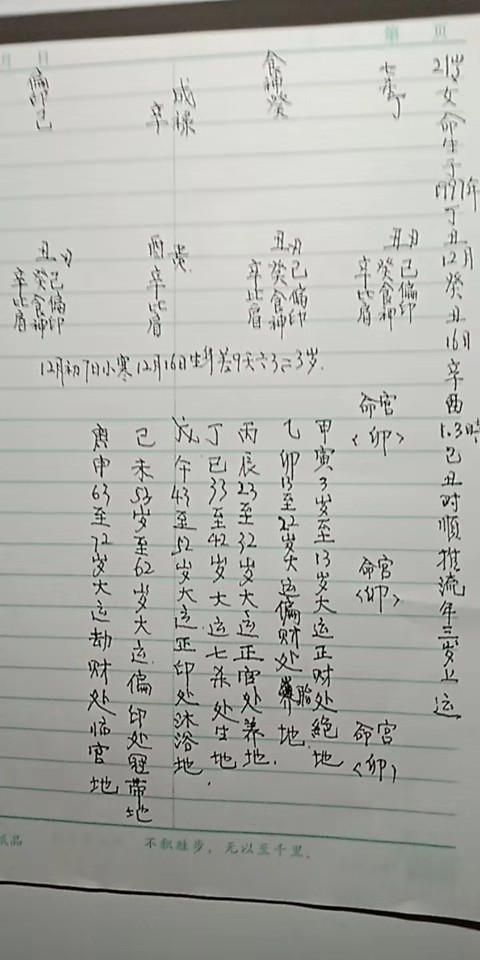 月 日
第 页
21岁女命生于1997年丁丑12月癸丑16日辛酉1.3时己丑时顺推流年三岁上运
七杀丁
食神癸
成禄
辛
偏印己
丑月
己偏印
癸食神
辛比肩
丑月
己偏印
癸食神
辛比肩
酉
辛比肩
丑月
己偏印
癸食神
辛比肩
12月初7日小寒12月16日生年差9天
3岁.
命宫
<卯>
命宫
<卯>
命宫
<卯>
甲寅3岁至13岁大运正财处绝地
乙卯13至22岁大运偏财处胎地.
丙辰23至32岁大运正官处养地.
丁巳33至42岁大运七杀处生地.
戊午43至52岁大运正印处沐浴地
己未53岁至62岁大运偏印处冠带地
庚申63至72岁大运劫财处临官地
纸品
不积跬步，无以至千里.